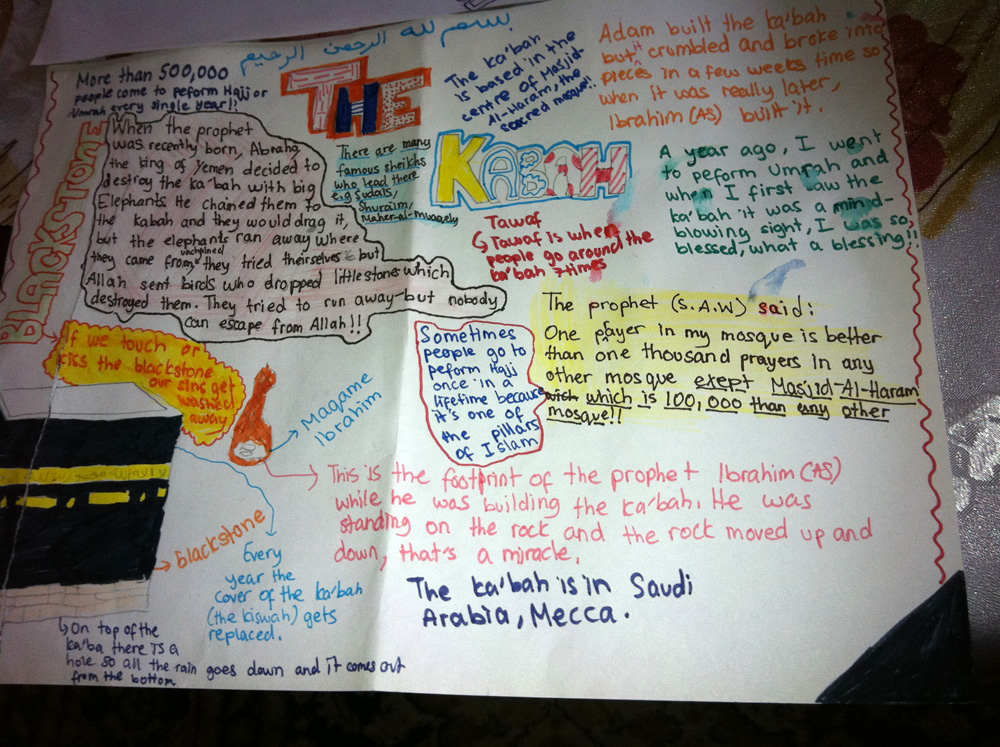 بسم لله الرحمن الرحيم
More than 500,000
people come to peform Hajj or
Umrah every single year!!
THE
KABAH
The ka'bah
is based in the
centre of Masjid-
Al-Haram, the
sacred mosque!!
Adam built the ka'bah
but it crumbled and broke into
pieces in a few weeks time so
when it was really later,
Ibrahim (AS) built it.
BLACKSTONE
When the prophet
was recently born, Abraha
the king of Yemen decided to
destroy the ka'bah with big
Elephants. He chained them to
the kabah and they would drag it,
but the elephants ran away where
they came from, unchained they tried theirselves but
Allah sent birds who dropped little stones which
destroyed them. They tried to run away-but nobody
can escape from Allah!!
There are many
famous sheikhs
who lead there
e.g Sudais,
Shuraim,
Maher-al-muaqely
A year ago, I went
to peform Umrah and
when I first saw the
ka'bah it was a mind-
blowing sight, I was so
blessed, what a blessing!!
Tawaf
Tawaf is when
people go around the
ka'bah 7 times
The prophet (S.A.W) said:
One prayer in my mosque is better
than one thousand prayers in any
other mosque exept Masjid-Al-Haram
which is 100,000 than any other
mosque!!
Sometimes
people go to
peform Hajj
once in a
lifetime because
it's one of
the pillars
of Islam
If we touch or
kiss the blackstone
our sins get
washed
away
Maqame
Ibrahim
This is the footprint of the prophet Ibrahim (AS)
while he was building the ka'bah. He was
standing on the rock and the rock moved up and
down, that's a miracle.
blackstone
Every
year the
cover of the ka'bah
(the kiswah) gets
replaced.
The ka'bah is in Saudi
Arabia, Mecca.
On top of the
ka'ba there is a
hole so all the rain goes down and it comes out
from the bottom